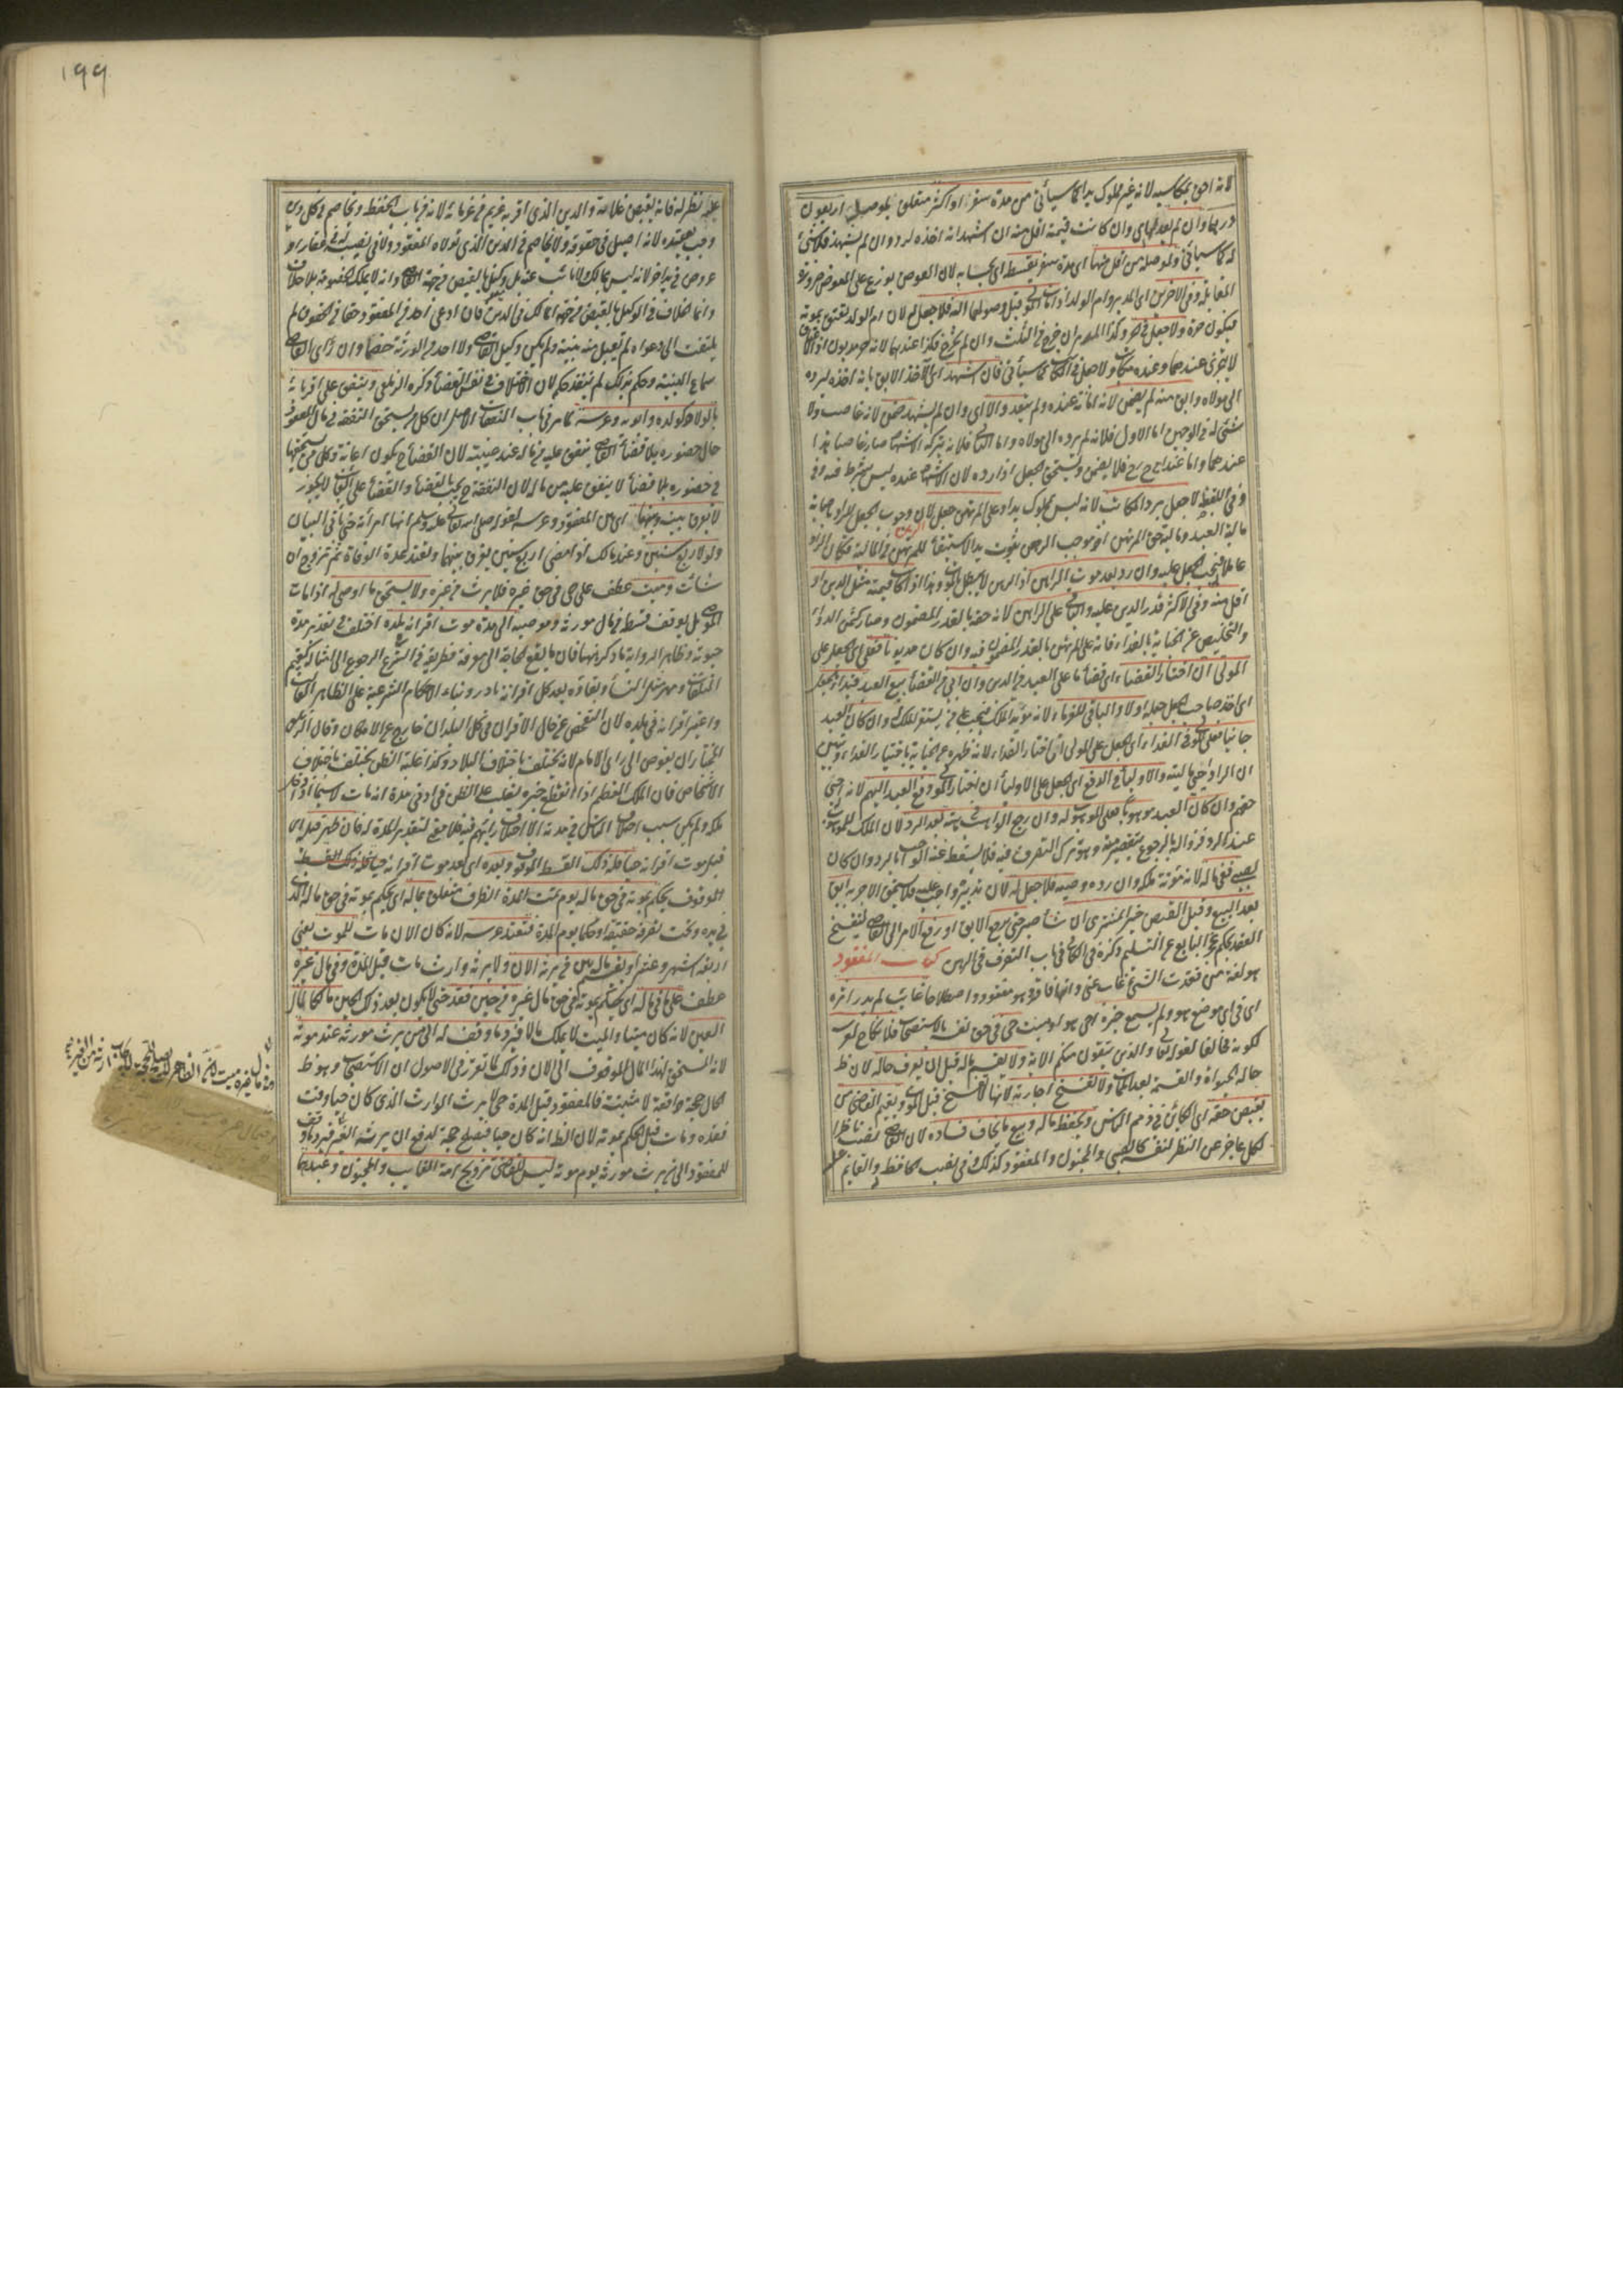 لانه احق بمكاسبه لانه غير مملوك يدا كما سيأتي من مدة سفر او اكثر متعلق بموصل اربعون
درهما وان لم يعدلها اى وان كانت قيمته اقل منه ان اشهد انه اخذه لرده وان لم يشهد فلا شئ
له كما سيأتي ولموصله من اقل منها اى مدة سفر بقسطه اى بحسابه لان العوض يوزع على المعوض ضرورة
المقابلة وفى الاخرين اى المدبر وام الولد اذا مات المولى قبل وصولهما اليه فلا جعل له لان ام الولد تعتق بموته
فيكون حرة ولا جعل فى الحر وكذا المدبر ان خرج من الثلث وان لم يخرج فكذا عندهما لانه حر مديون اذ العتق
لا يتجزى عندهما وعنده مكاتب ولا جعل فى المكاتب كما سيأتي فان اشهد اى الآخذ الابق بانه اخذه ليرده
الى مولاه وابق منه لم يضمن لانه امانة عنده ولم يتعد والا اى وان لم يشهد ضمن لانه غاصب ولا
شئ له فى الوجهين اما الاول فلانه لم يرده الى مولاه واما الثانى فلانه بتركه الاشهاد صار غاصبا هذا
عندهما واما عند ابى ح رح فلا يضمن ويستحق الجعل اذا رده لان الاشهاد عنده ليس بشرط فيه وفى
وفى اللقطة لا جعل برد المكاتب لانه ليس بمملوك يدا وعلى المرتهن جعل الرهن لان وجوب الجعل للراد باحيائه
مالية العبد وماليته حق المرتهن اذ موجب الرهن ثبوت يد الاستيفاء للمرتهن فى المالية فكان الراد
عاملا له فيجب الجعل عليه وان رد بعد موت الراهن اذ الرهن لا يبطل بالموت وهذا اذا كانت قيمته مثل الدين او
اقل منه وفى الاكثر قدر الدين عليه والباقى على الراهن لانه حقه بالقدر المضمون وصار كثمن الدواء
والتخليص عن الجناية بالفداء فانه على المرتهن بالقدر المضمون فيه وان كان مديونا فعلى اى الجعل على
المولى ان اختار القضاء اى قضاء ما على العبد من الدين وان ابى عن القضاء بيع العبد فبدأ بالجعل
اى اخذ صاحب الجعل جعله اولا والباقى للغرماء لانه مؤنة الملك فيجب على من يستقر الملك له وان كان العبد
جانيا فعلى المولى فى الفداء اى الجعل على المولى ان اختار الفداء لانه طهره عن الجناية باختيار الفداء وتبين
ان الراد احيى ماليته والاولياء فى الدفع اى الجعل على الاولياء ان اختار المولى دفع العبد اليهم لانه احيى
حقهم وان كان العبد موهوبا فعلى الموهوب له وان رجع الواهب فى هبته بعد الرد لان الملك للموهوب له
عند الرد وزواله بالرجوع بتقصير منه وهو ترك التصرف فيه فلا يسقط عنه الواجب بالرد وان كان
لصبى ففى ماله لانه مؤنة ملكه وان رده وصيه فلا جعل له لان تدبيره واجب عليه فلا يستحق الاجر به ابق
بعد البيع وقبل القبض خير المشترى ان شاء صبر حتى يرجع الابق او رفع الامر الى القاضى ليفسخ
العقد بحكم عجز البايع عن التسليم ذكره فى الكافى فى باب التصرف فى الرهن كتاب المفقود
هو لغة من فقدت الشئ غاب عنى وانا فاقد وهو مفقود واصطلاحا غائب لم يدر اثره
اى فى اى موضع هو ولم يسمع خبره احى هو ام ميت حى فى حق نفسه بالاستصحاب فلا تنكح عرسه
لكونه مخالفا لقوله تعالى والذين يتوفون منكم الاية ولا يقسم ماله قبل ان يعرف حاله لان ظ
حاله الحيواة والقسمة بعد الممات ولا تفسخ اجارته لانها لا تفسخ قبل الموت ويقيم القاضى من
يقبض حقه اى الكائن فى ذمم الناس ويحفظ ماله ويبيع ما يخاف فساده لان القاضى نصب ناظرا
لكل عاجز عن النظر لنفسه كالصبى والمجنون والمفقود كذلك وفى نصب الحافظ والقايم
١٩٩
عليه نظر له فانه يقبض غلاته والدين الذى اقر به غريم من غرمائه لانه من باب الحفظ ويخاصم فى كل دين
وجب بعقده لانه اصيل فى حقوقه ولا يخاصم فى الدين الذى تولاه المفقود ولا فى نصيب له فى عقار او
عروض فى يد آخر لانه ليس بمالك ولا نائب عنه بل وكيل بالقبض من جهة القاضى وانه لا يملك الخصومة بلا خلاف
وانما الخلاف فى الوكيل بالقبض من جهة المالك فى الدين فان ادعى احد على المفقود حقا من الحقوق لم
يلتفت الى دعواه ولم تقبل منه بينة ولم يكن وكيل القاضى ولا احد من الورثة خصما وان رأى القاضى
سماع البينة وحكم بذلك لم ينفذ حكمه لان الاختلاف فى نفس القضاء ذكره الزيلعى وينفق على اقربائه
بالولاد كولده وابويه وعرسه كما مر فى باب النفقات الاصل ان كل من يستحق النفقة فى مال المفقود
حال حضوره بلا قضاء القاضى ينفق عليه من ماله عند غيبته لان القضاء ح يكون اعانة وكل من لا يستحقها
فى حضوره بلا قضاء لا ينفق عليه من ماله لان النفقة ح يجب بالقضاء والقضاء على الغائب لا يجوز
لا يفرق بينه وبينها اى بين المفقود وعرسه لقوله صلى الله تعالى عليه وسلم انها امرأته حتى يأتى البيان
ولو لاربع سنين وعند مالك اذا مضى اربع سنين يفرق بينهما وتعتد عدة الوفاة ثم تتزوج ان
شاءت وميت عطف على حى فى حق غيره فلا يرث من غيره ولا يستحق ما اوصى له اذا مات
الموصى بل يوقف قسطه من مال مورثه وموصيه الى مدة موت اقرانه ببلده اختلف فى تقدير مدة
حيوته وظاهر الرواية ما ذكر ههنا فان ما يقع الحاجة الى معرفته فطريقه فى الشرع الرجوع الى امثاله كقيم
المتلفات ومهر مثل النساء وبقاؤه بعد كل اقرانه نادر وبناء الاحكام الشرعية على الظاهر الغالب
واعتبر اقرانه فى بلده لان التفحص عن حال الاقران فى كل البلدان خارج عن الامكان وقال الزيلعى
المختار ان يفوض الى راى الامام لانه يختلف باختلاف البلاد وكذا غلبة الظن يختلف باختلاف
الاشخاص فان الملك العظيم اذا انقطع خبره يغلب على الظن فى ادنى مدة انه مات لا سيما اذا دخل
مهلكة ولم يكن سبب اختلاف الناس فى مدته الا اختلاف رأيهم فيه فلا معنى لتقدير المدة له فان ظهر قبله اى
قبل موت اقرانه حيا فله ذلك القسط الموقوف وبعده اى بعد موت اقرانه
الموقوف يحكم بموته فى حق ماله يوم تمت المدة الظرف متعلق بماله اى يحكم بموته فى حق ماله الذى
فى يده وتحت تصرفه حقيقة او حكما يوم المدة فتعتد عرسه لانه كان الان مات للموت يعنى
اربعة اشهر وعشرا ويقسم ماله بين من يرثه الان ولا يرثه وارث مات قبل المدة وفى مال غيره
عطف على فى ماله اى يحكم بموته فى حق مال غيره من حين فقد حتى لا يكون بعد ذلك الحين مالكا لمال
الغير لانه كان ميتا والميت لا يملك مال غيره وما وقف له الى من يرث مورثه عند موته
لانه المستحق لهذا المال الموقوف الى الان وذلك لما تقرر فى الاصول ان الاستصحاب وهو ظ
الحال حجة دافعة لا مثبتة فالمفقود قبل المدة حى لا يرثه الوارث الذى كان حيا وقت
فقده ومات قبل الحكم بموته لان الظ انه كان حيا فيصلح حجة لدفع ان يرثه الغير فيرد ما وقف
للمفقود الى من يرث مورثه يوم موته ليس للقاضى تزويج امة الغايب والمجنون وعبدهما